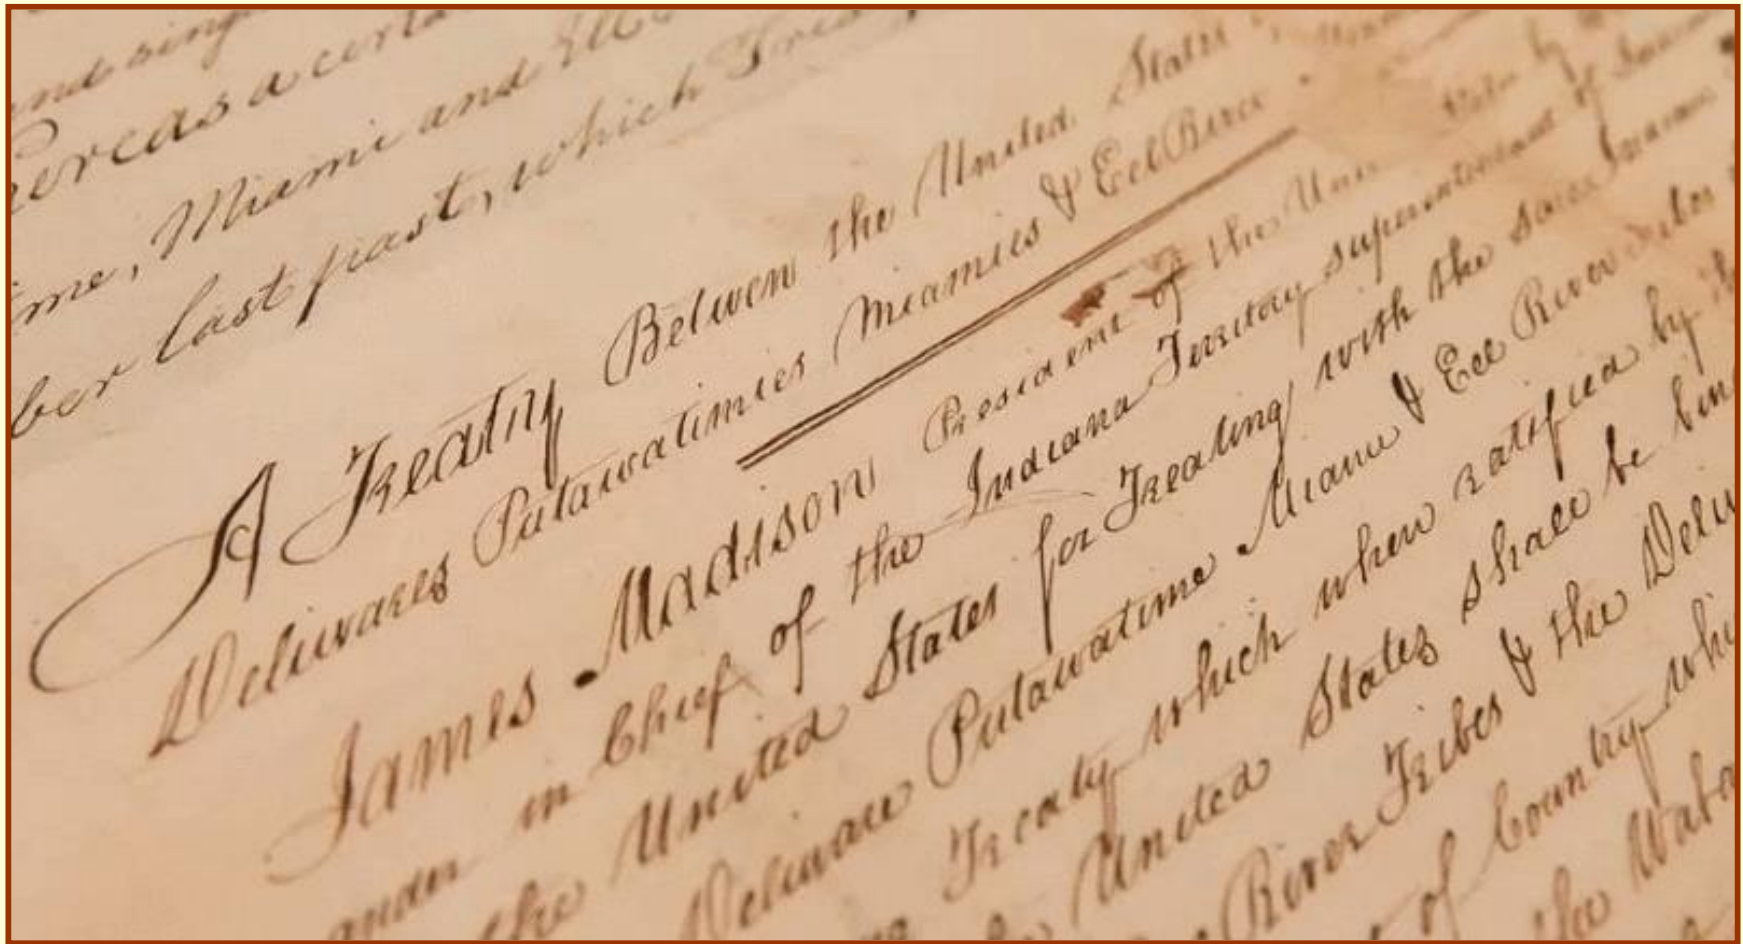 and sing
hereas a certa
me, Miami and Eel
ber last past, which Trea
A Treaty Betwen the United States
Deliwares Putawatimies Miamies & Eel River
James Madison President of the Uni
ander in Chief of the Indiana Territory superintendant of
the United States for Treating with the said Indian
Deliware Putawatime Miami & Eel River tribes
Treaty which when ratified by th
United States shall be bin
River Tribes & the Deliw
of Country whi
the Waba